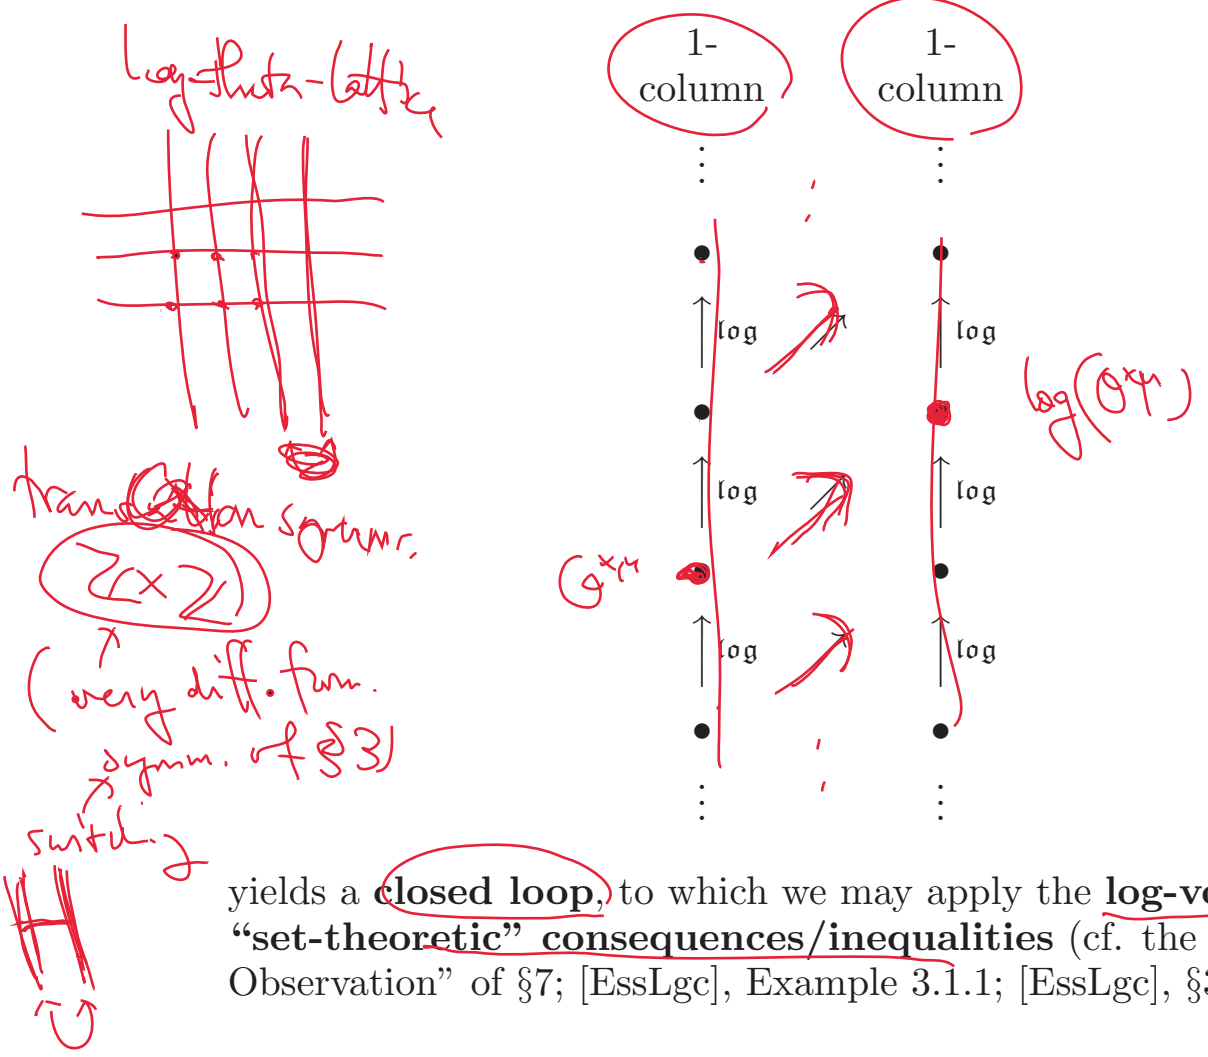 log-theta-lattice
translation symm.
Z × Z
(very diff. from
symm. of §3)
switching
1-
column
1-
column
⋮
⋮
log
log
log
log
log
log
O^{×μ}
log(O^{×μ})
⋮
⋮
yields a closed loop, to which we may apply the log-vo
“set-theoretic” consequences/inequalities (cf. the
Observation” of §7; [EssLgc], Example 3.1.1; [EssLgc], §3